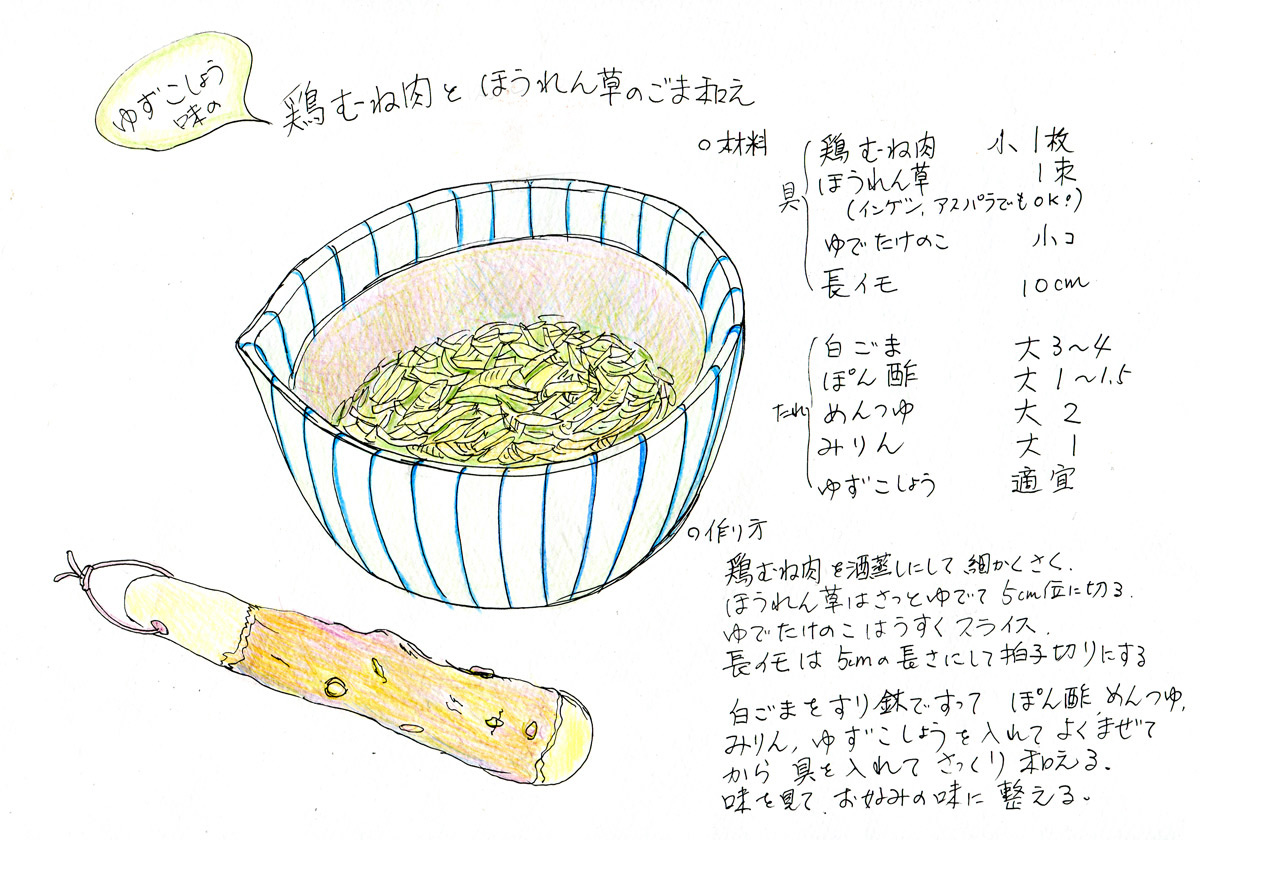 ゆずこしょう
味の
鶏むね肉とほうれん草のごま和え
○材料
具
鶏むね肉 小1枚
ほうれん草 1束
(インゲン、アスパラでもOK!)
ゆでたけのこ 小コ
長イモ 10cm
たれ
白ごま 大3〜4
ぽん酢 大1〜1.5
めんつゆ 大2
みりん 大1
ゆずこしょう 適宜
○作り方
鶏むね肉を酒蒸しにして細かくさく.
ほうれん草はさっとゆでて5cm位に切る.
ゆでたけのこはうすくスライス.
長イモは5cmの長さにして拍子切りにする
白ごまをすり鉢ですって ぽん酢、めんつゆ,
みりん,ゆずこしょうを入れてよくまぜて
から具を入れてさっくり和える.
味を見て、お好みの味に整える。